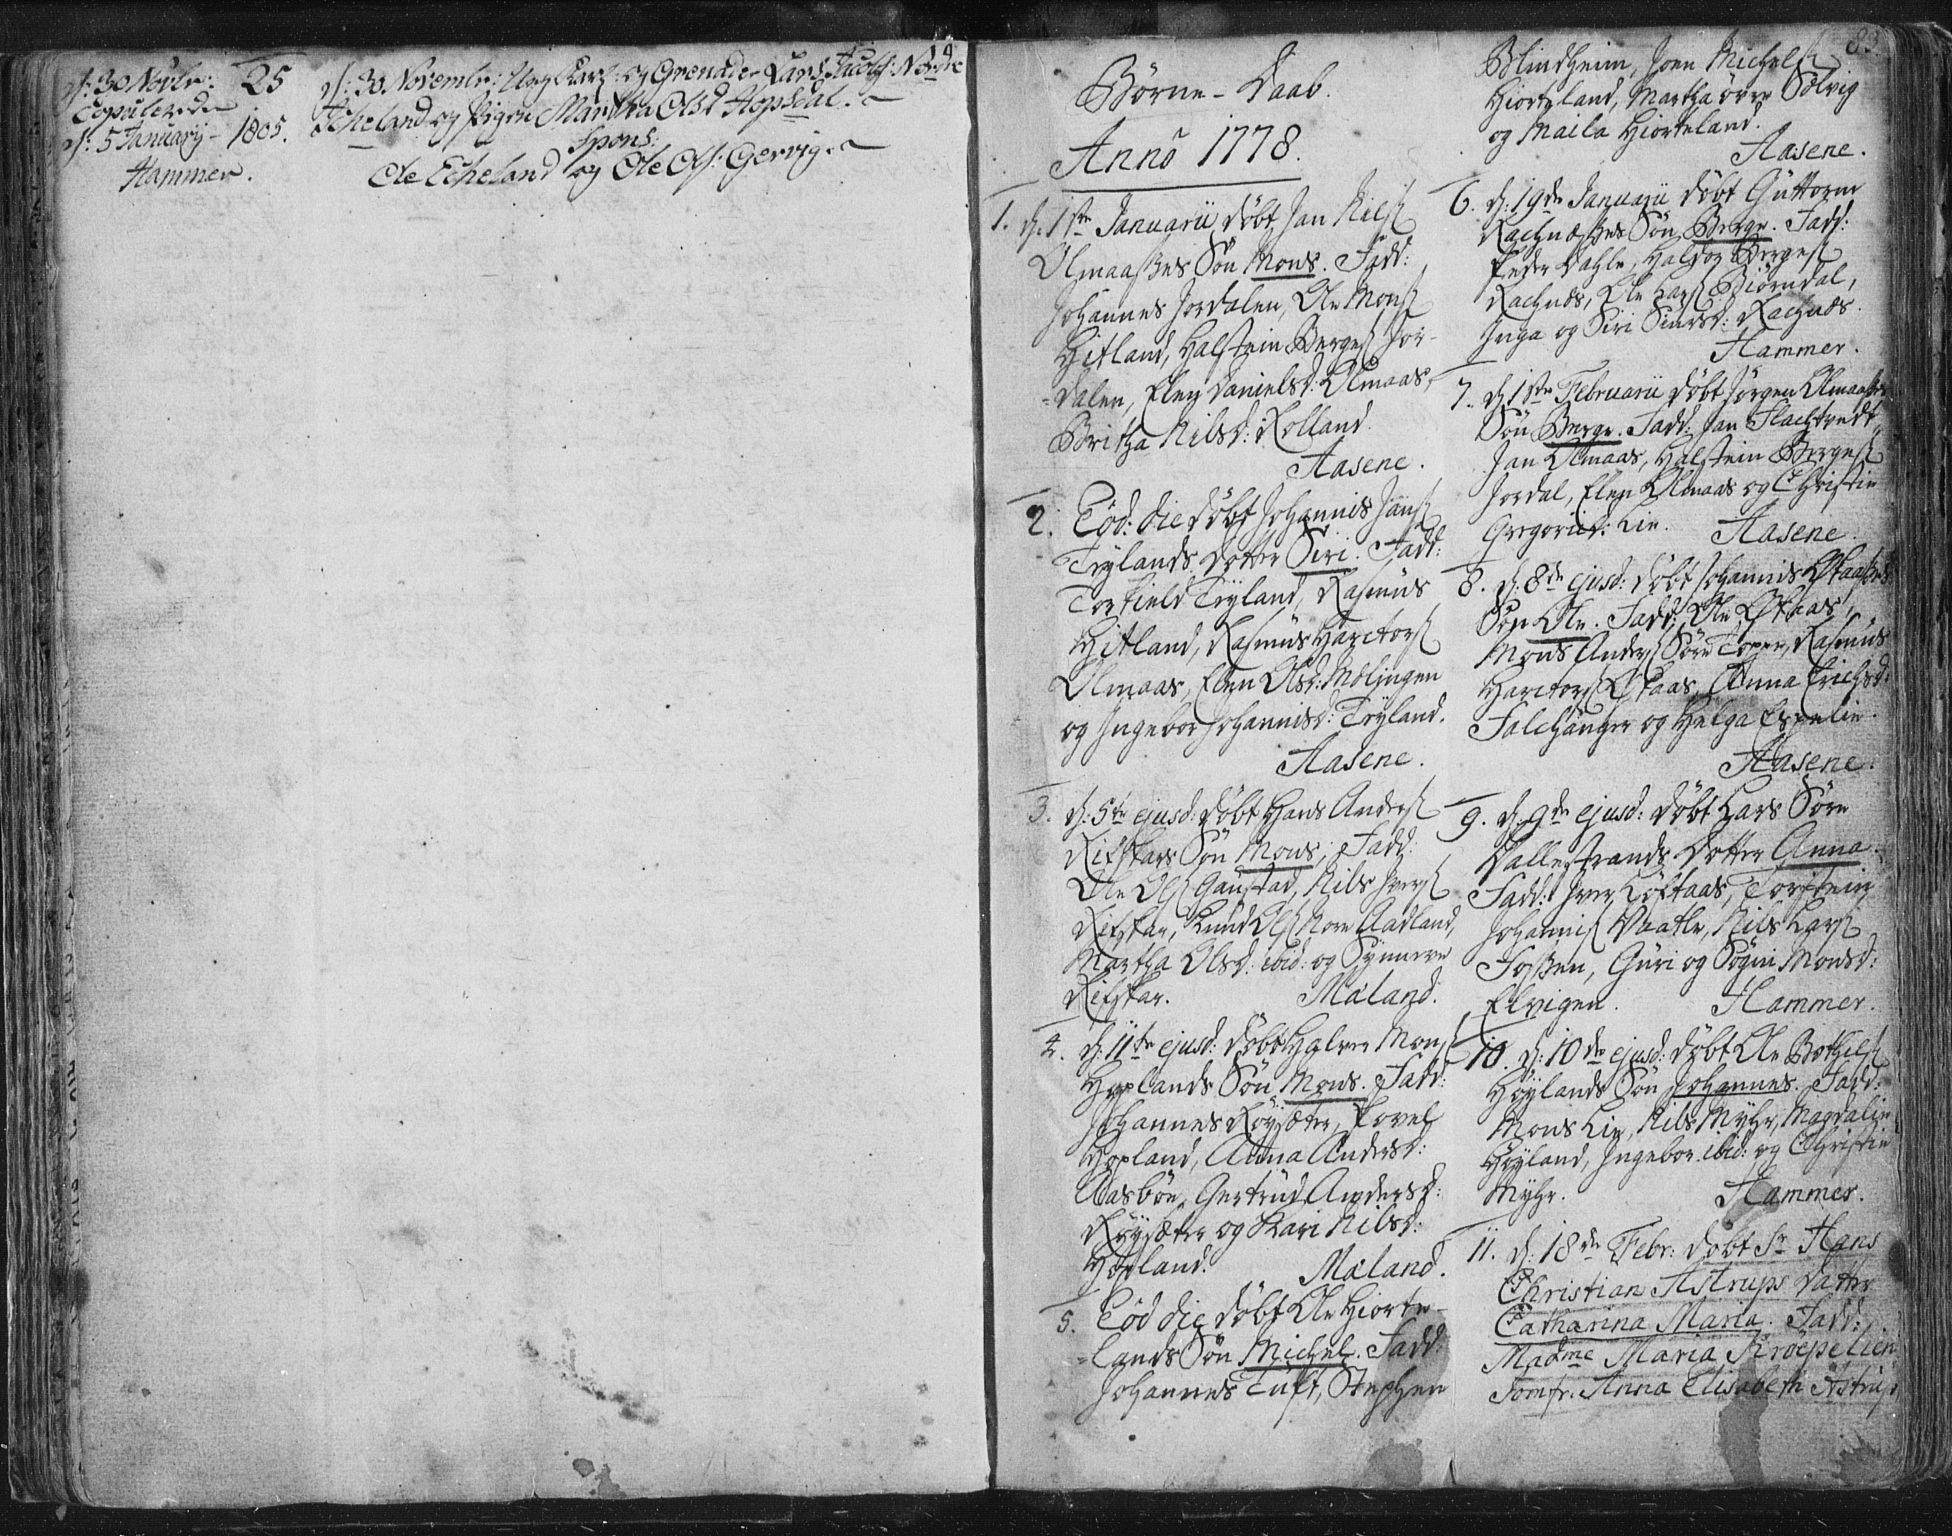 d: 30 Novbr:
Copulerede
d: 5 January -
Hammer.
25
1805.
19
d: 30 November: Ung Karl og Grenader Lars Jacobs: Nordre
Echeland og Pigen Martha Olsd Hopsdal.
Spons:
Ole Echeland og Ole Ols: Gervig.
83.
Börne - Daab.
Anno 1778.
1. d: 1ste Januarii döbt Jan Nils
Olmaasses Sön Mons. Fadd:
Johannes Jordalen, Ole Mons
Hitland, Halstein Berges Jor-
=dalen, Elen Danielsd: Olmaas,
Britha Nilsd: Rolland.
Aasene.
2. Eod: die döbt Johannis Jans
Trylands Dotter Siri. Fadd:
Torkield Tryland, Rasmus
Hitland, Rasmus Harctors
Olmaas, Elen Olsd: Mölingen
og Ingebor Johannisd: Tryland.
Aasene.
3. d: 5te ejusd: döbt Hans Anders
Refskars Sön Mons, Fadd:
Ole Ols Ganstad, Nils Ivers
Refskar, Knud Ols Nore Aadland,
Martha Olsd: ibid: og Synneve
Refskar. Mæland.
4. d: 11te ejusd: döbt Halvor Mons
Hoplands Sön Mons. Fadd:
Johannes Röysæter, Povel
Hopland, Anna Andersd:
Aasböe, Gertrud Andersd:
Röysæter og Kari Nilsd:
Hopland. Mæland.
5. Eod die döbt Ole Hiorte-
=lands Sön Michel. Fadd:
Johannes Tuft, Stephen
Blindheim, Joen Michels
Hiorteland, Martha övre Solvig
og Maila Hiorteland.
Aasene.
6. d: 19de Januarii döbt Guttorm
Rachnæsses Sön Berge. Fadd:
Peder Dahle, Haldor Berges
Rachnæs, Ole Lars Biörndal,
Inga og Siri Simersd: Rachnæs.
Hammer.
7. d: 1ste Februarii döbt Jörgen Olmaasses
Sön Berge. Fadd: Jan Flachtvedt,
Jan Olmaas, Halstein Berges
Jordal, Elen Olmaas og Christin
Gregoriid: Lie. Aasene.
8. d: 8de ejusd: döbt Johannis Öskaasses
Sön Ole. Fadd: Ole Öskaas,
Mons Anders Söre Toppe, Rasmus
Harctors Öskaas, Anna Erichsd:
Salchanger og Helga Espelie.
Aasene.
9. d: 9de ejusd: döbt Lars Söre
Vallestrands Dotter Anna.
Fadd: Iver Löftaas, Torstein
Johannis Vatle, Nils Lars
Fossen, Guri og Sögni Monsd:
Elvigen. Hammer.
10. d: 10de ejusd: döbt Ole Bothels
Höylands Sön Johannes. Fadd:
Mons Lie, Nils Myhr, Magdalin
Höyland, Ingebor ibid: og Christin
Myhr. Hammer.
11. d: 18de Febr: döbt Sr Hans
Christian Astrups Datter
Catharina Maria. Fadd:
Madme Maria Kröepelien
Jomfr: Anna Elisabeth Astrup